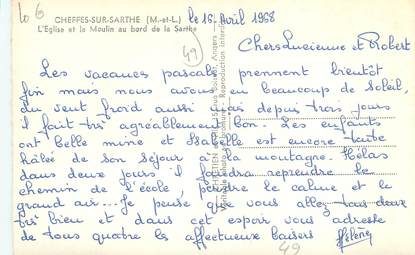 lo 6
CHEFFES-SUR-SARTHE (M.-et-L.)
L'Eglise et le Moulin au bord de la Sarthe
49
le 16 Avril 1968
Chers Lucienne et Robert
Les vacances pascales prennent bientôt
fin mais nous avons eu beaucoup de Soleil,
du vent froid aussi mais depuis trois jours
il fait très agréablement bon. Les enfants
ont belle mine et Isabelle est encore toute
hâlée de son séjour à la montagne. Hélas
dans deux jours il faudra reprendre le
chemin de l'école, perdre le calme et le
grand air... Je pense que vous allez tous deux
très bien et dans cet espoir vous adresse
de tous quatre les affectueux baisers
Hélène
49
Reproduction Interdite